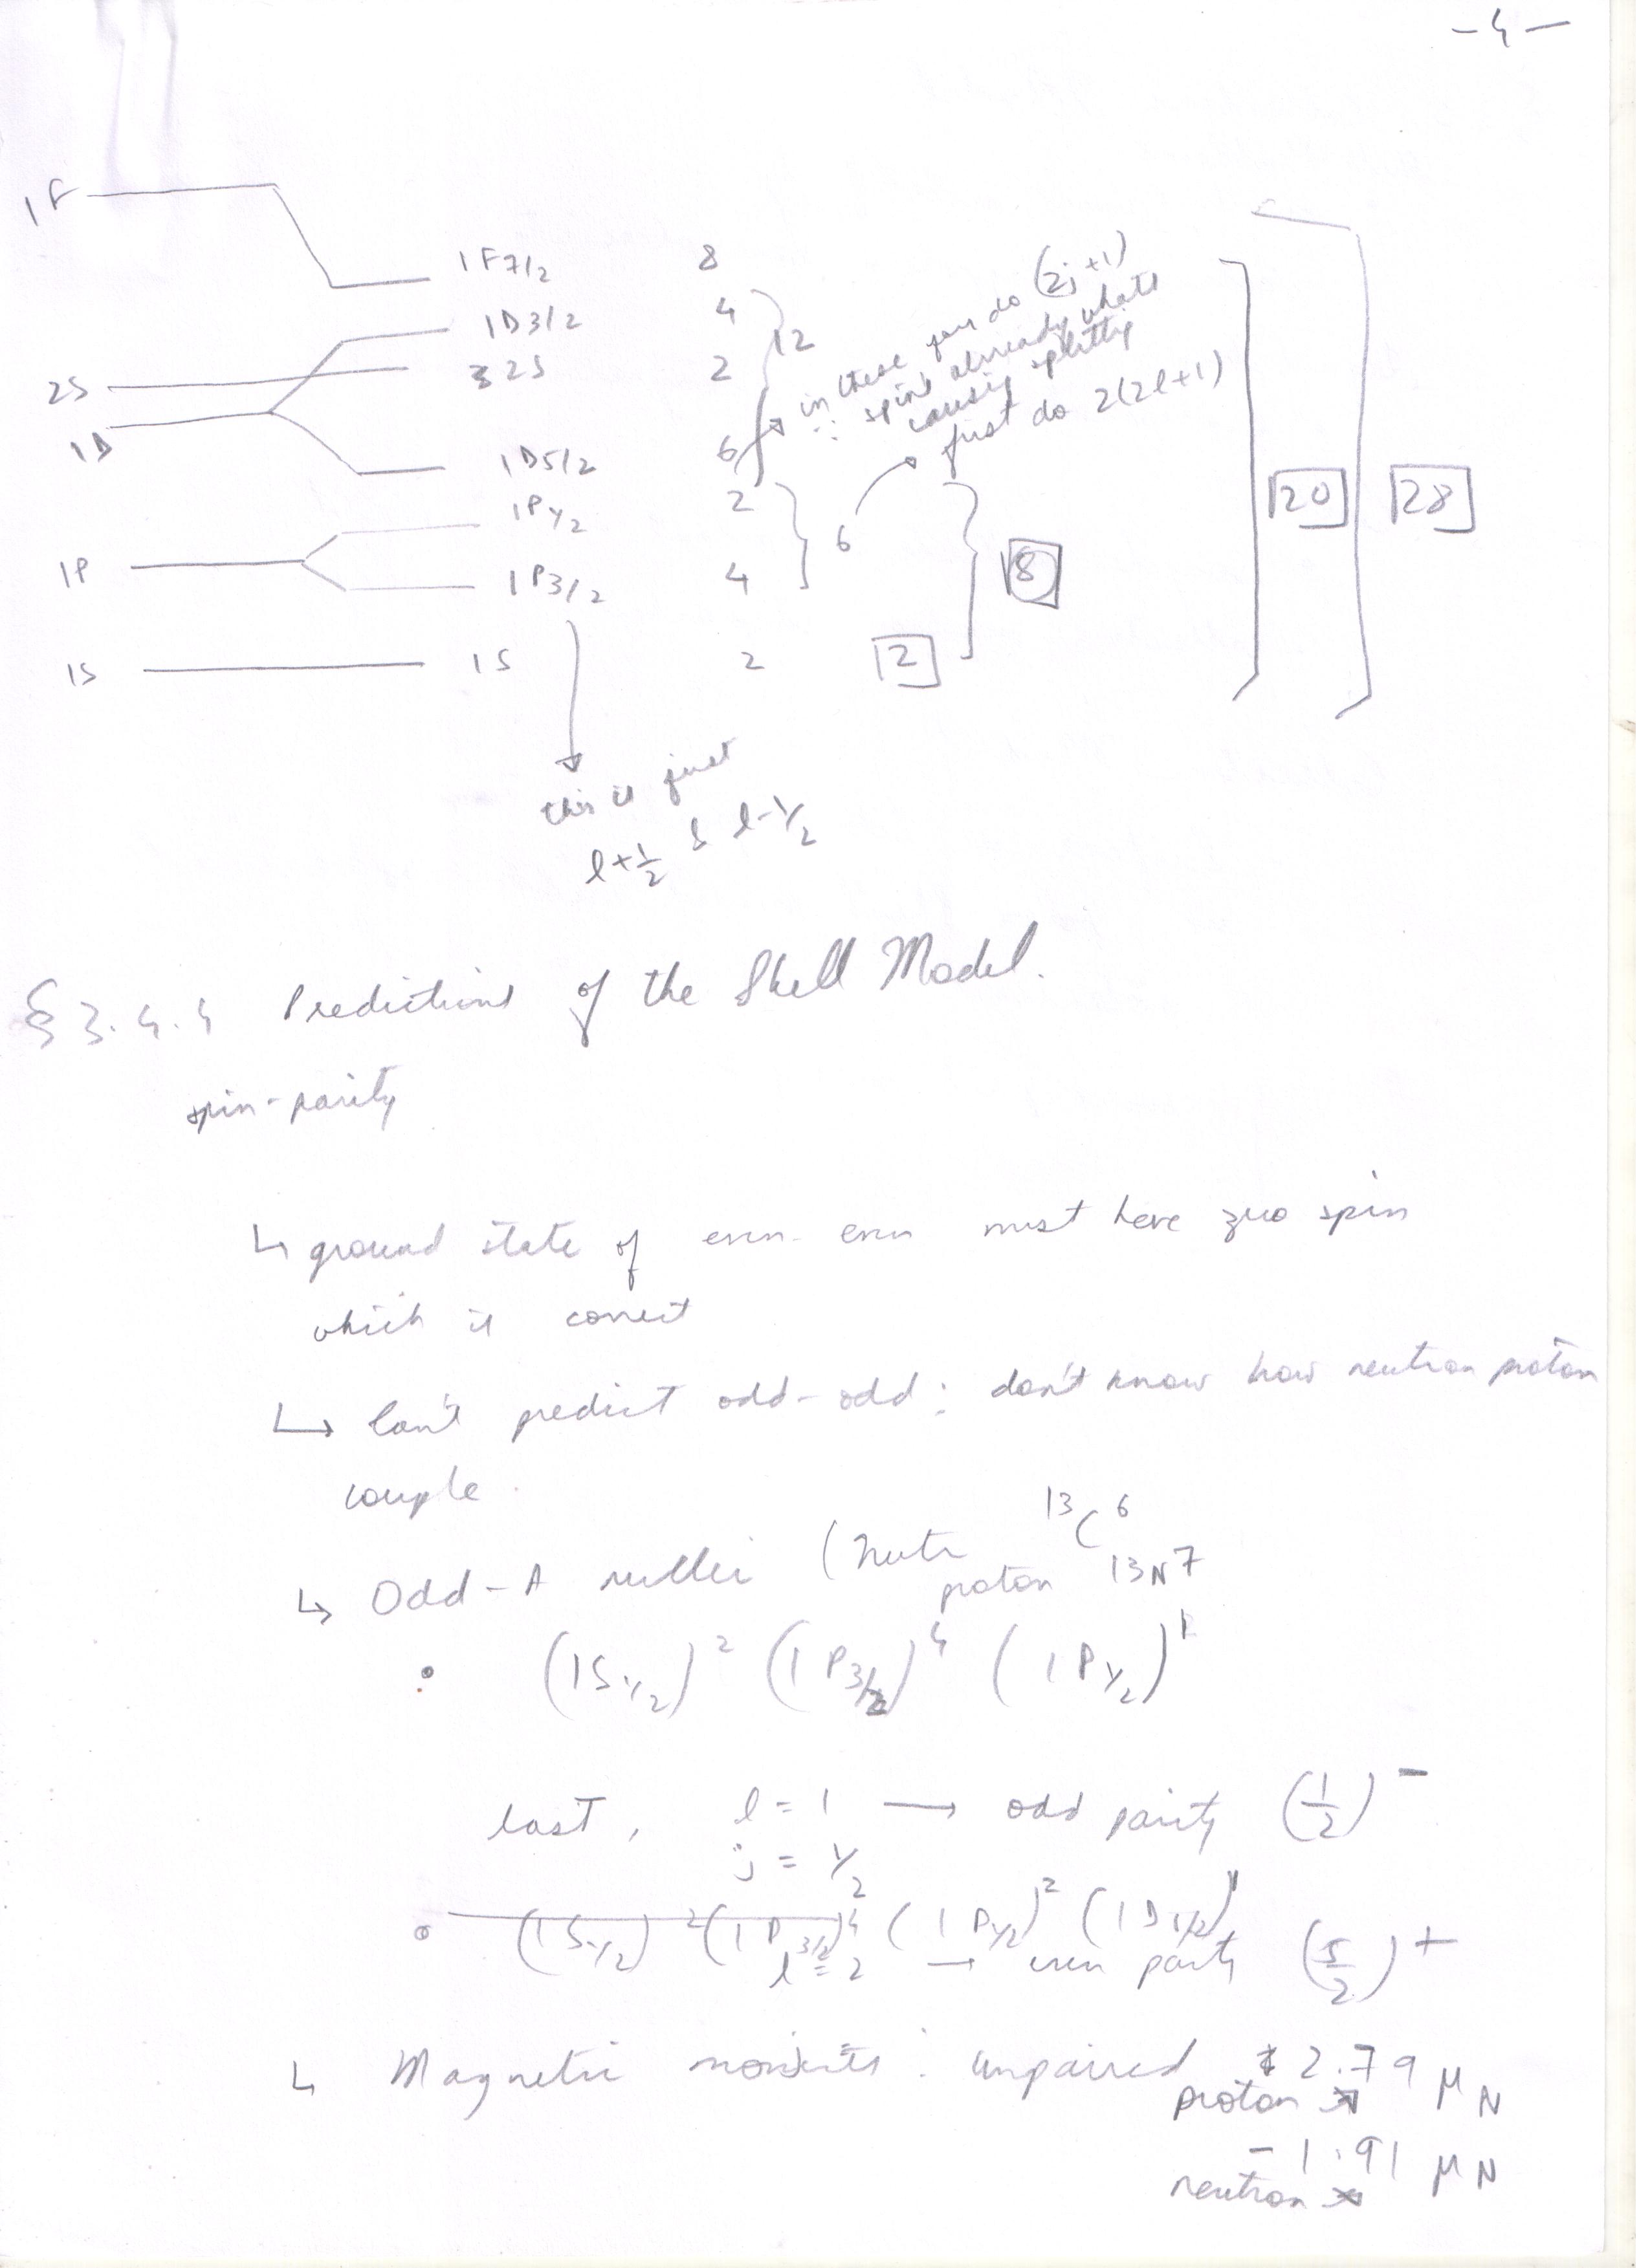 - 4 -
1F
1F7/2 8
1D3/2 4
12
2S
2S 2
1D
1D5/2 6
in these you do (2j+1)
∵ spins already whats
causing splitting
just do 2(2l+1)
1P1/2 2
6
1P
1P3/2 4
8
20
28
1S
1S 2
2
this is just
l+1/2 & l-1/2
§ 3.4.4 Predictions of the Shell Model.
spin-parity
↳ ground state of even-even must have zero spin
which is correct
↳ Can't predict odd-odd: don't know how neutron proton
couple.
↳ Odd-A nuclei (neutr 13C6
proton 13N7
• (1S1/2)² (1P3/2)⁴ (1P1/2)¹
last, l = 1 → odd parity (1/2)⁻
j = 1/2
• (1S1/2)² (1P3/2)⁴ (1P1/2)² (1D1/2)¹
l = 2 → even parity (5/2)⁺
↳ Magnetic moments: unpaired 2.79 μN
proton
- 1.91 μN
neutron